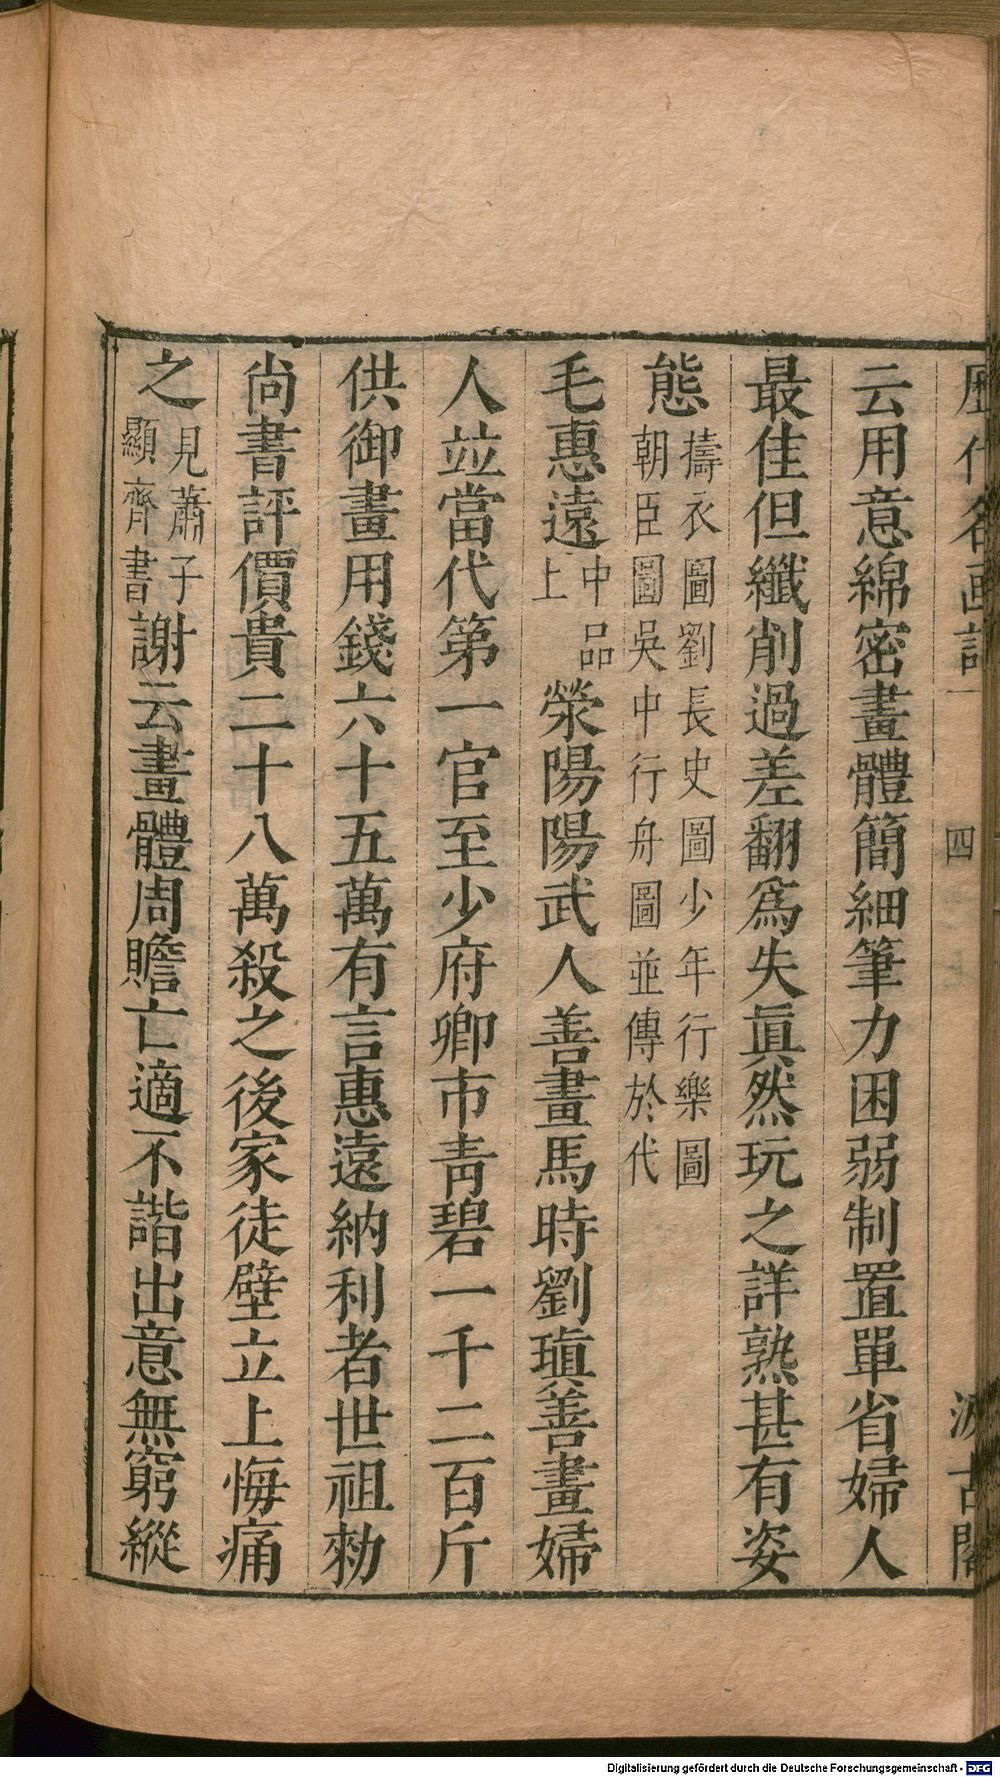 歷代名画記一 四 汲古閣
云用意綿密畫體簡細筆力困弱制置單省婦人
最佳但纖削過差翻爲失眞然玩之詳熟甚有姿
態擣衣圖劉長史圖少年行樂圖
朝臣圖吳中行舟圖並傳於代
毛惠遠中品
上
滎陽陽武人善畫馬時劉瑱善畫婦
人竝當代第一官至少府卿市靑碧一千二百斤
供御畫用錢六十五萬有言惠遠納利者世祖勑
尚書評價貴二十八萬殺之後家徒壁立上悔痛
之見蕭子
顯齊書
謝云畫體周贍亡適不諧出意無窮縱
Digitalisierung gefördert durch die Deutsche Forschungsgemeinschaft - DFG